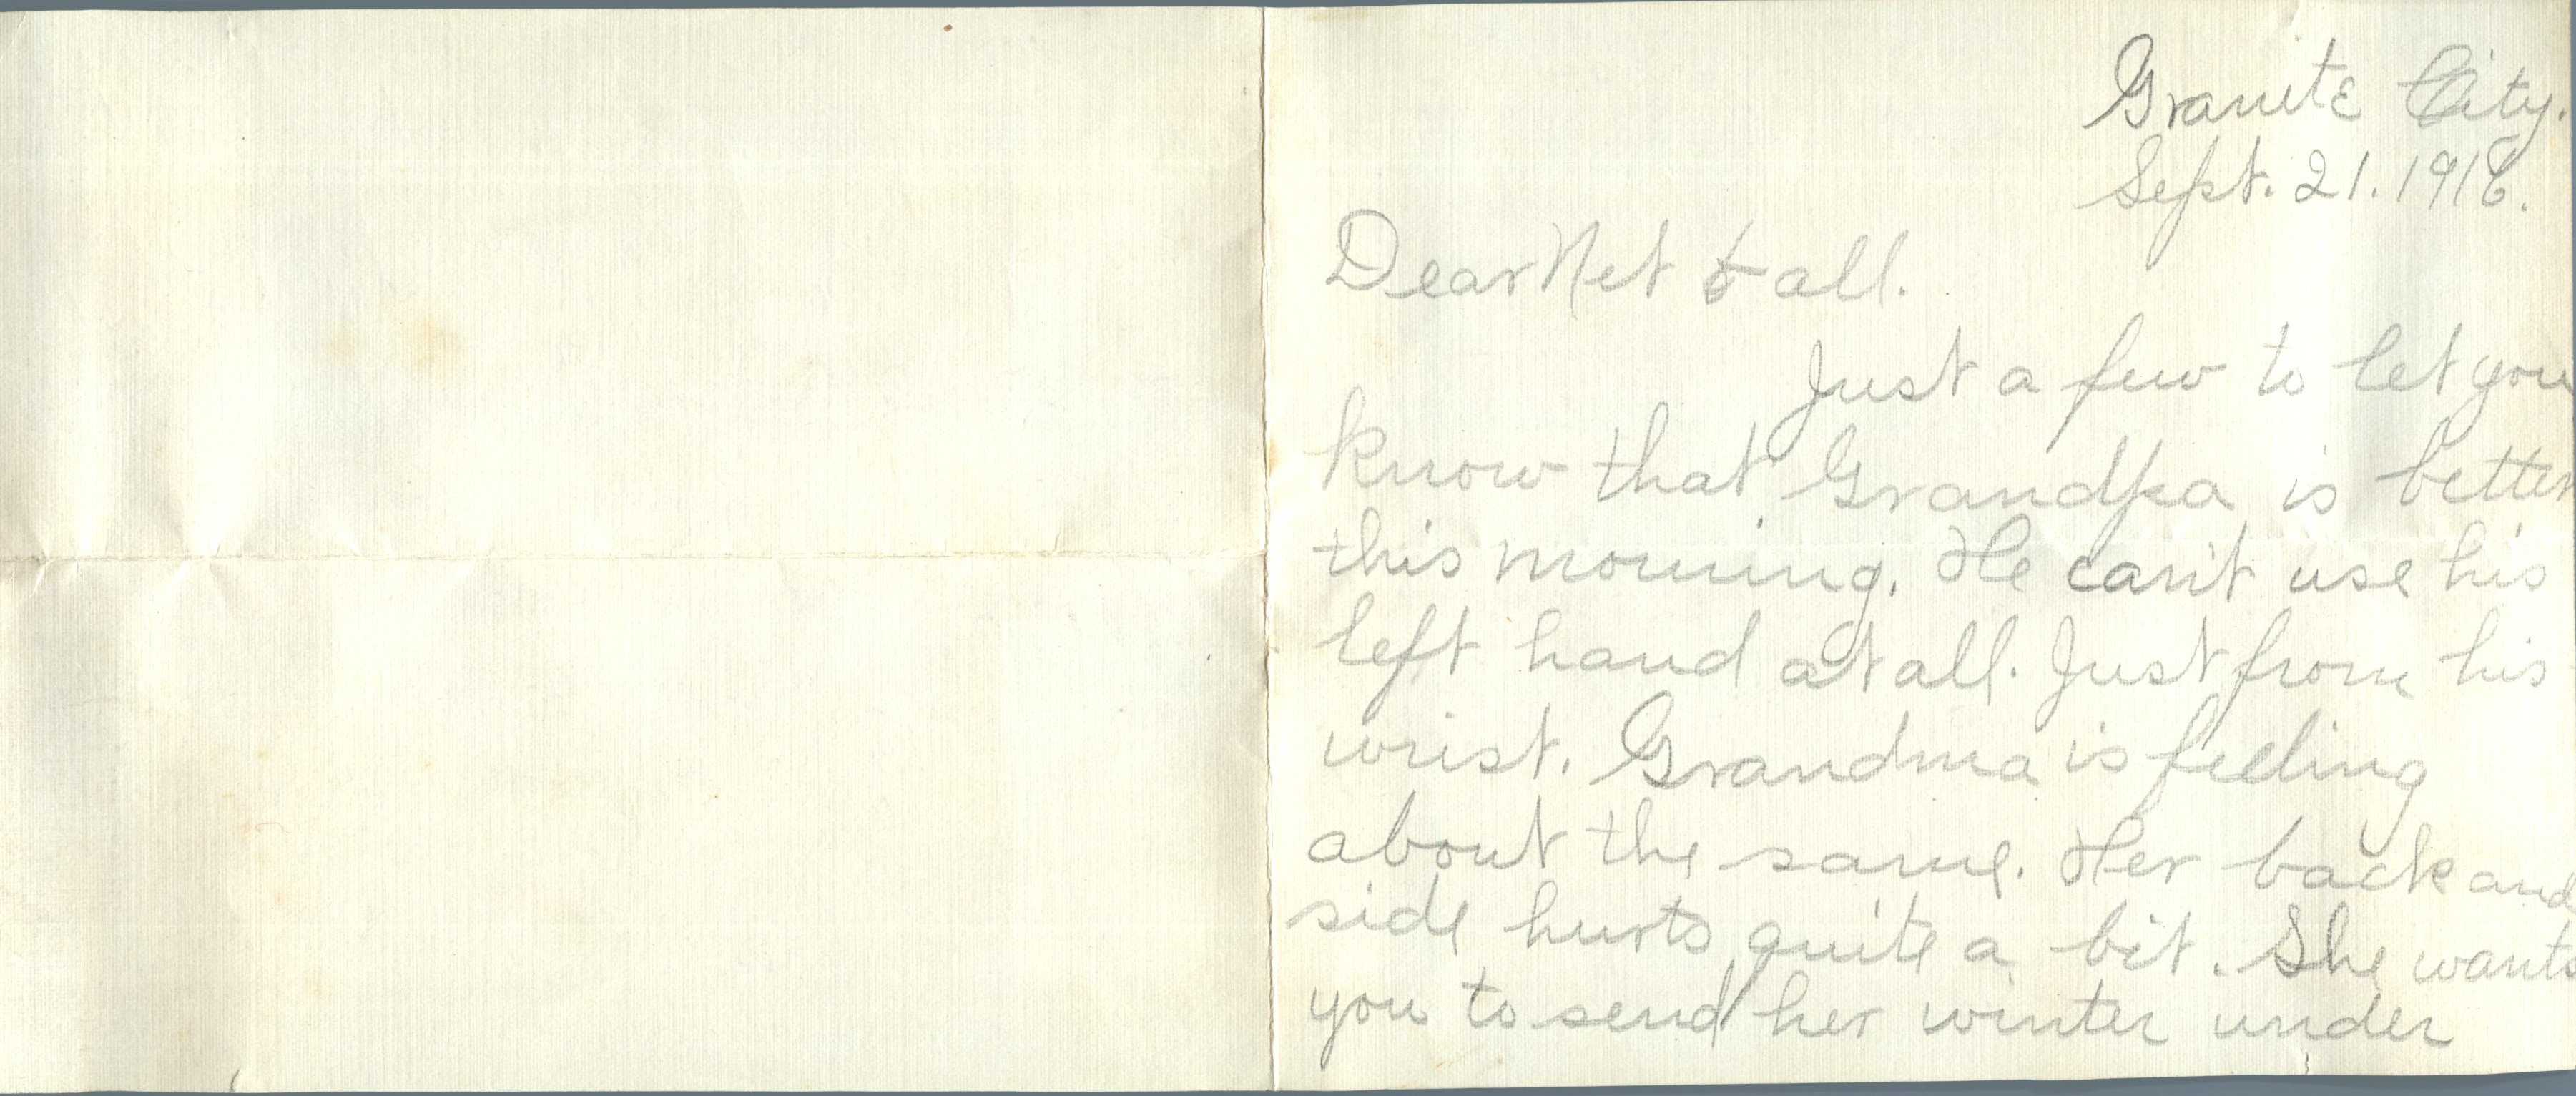 Granite City.
Sept. 21. 1916.
Dear Net & all.
Just a few to let you
know that Grandpa is better
this morning. He can't use his
left hand at all. Just from his
wrist. Grandma is feeling
about the same. Her back and
side hurts quite a bit. She wants
you to send her winter under